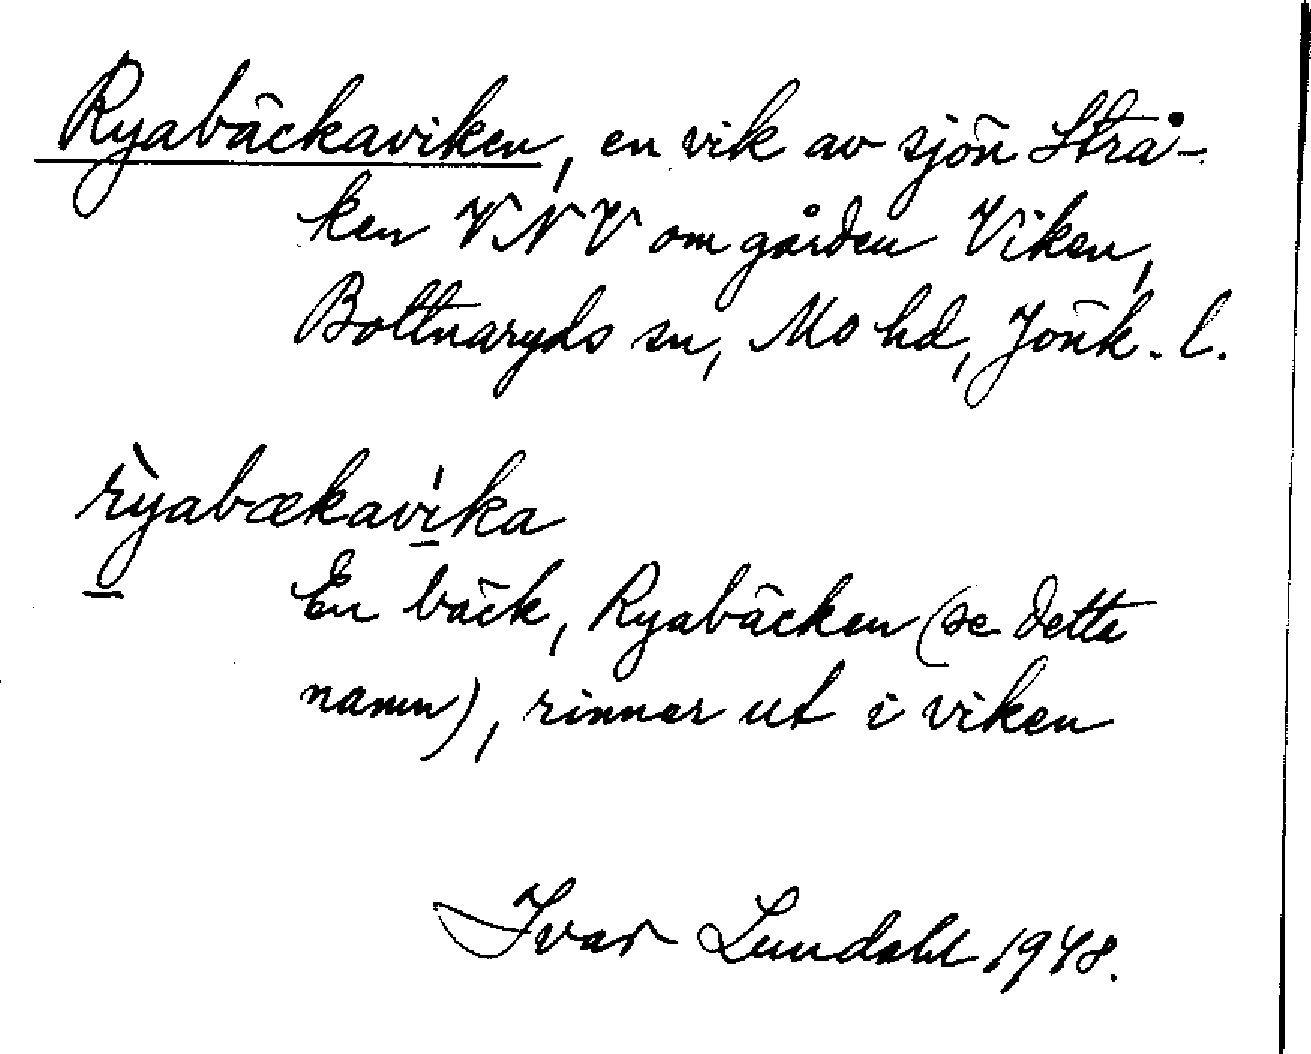 Ryabäckaviken, en vik av sjön Strå-
ken VNV om gården Viken,
Bottnaryds sn, Mo hd, Jönk. l.
rỳ̲abækavi̲̍ka
En bäck, Ryabäcken (se detta
namn), rinner ut i viken
Ivar Lundahl 1948.